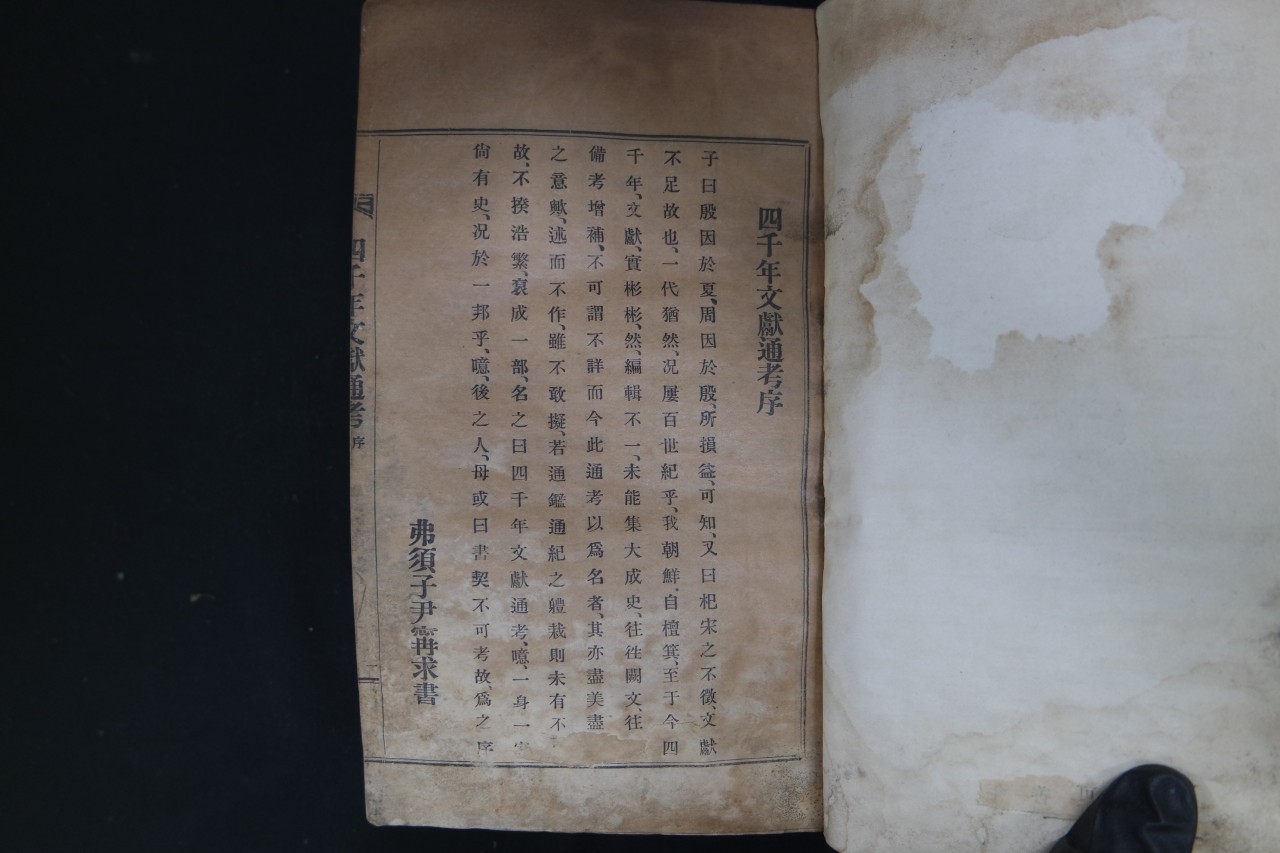 四千年文獻通考序
子曰殷因於夏、周因於殷、所損益、可知、又曰杞宋之不徵、文獻
不足故也、一代猶然、况屢百世紀乎、我朝鮮、自檀箕、至于今四
千年、文獻、實彬彬、然、編輯不一、未能集大成史、往往闕文、往
備考增補、不可謂不詳而今此通考以爲名者、其亦盡美盡
之意歟、述而不作、雖不敢擬、若通鑑通紀之軆裁則未有不
故、不揆浩繁、裒成一部、名之曰四千年文獻通考、噫、一身一
尙有史、况於一邦乎、噫、後之人、毋或曰書契不可考故、爲之序
弗須子尹甯求書
四千年文獻通考 序